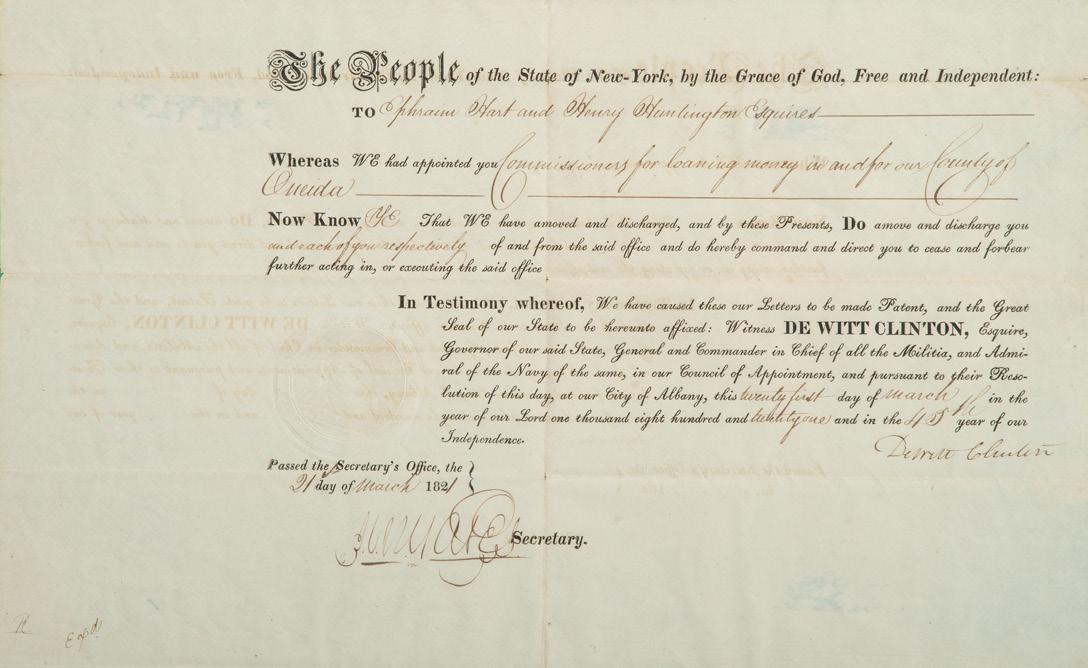 The People of the State of New-York, by the Grace of God, Free and Independent:
TO Ephraim Hart and Henry Huntington Esquires
Whereas WE had appointed you Commissioners for loaning money in and for our County of
Oneida
Now Know Ye That WE have amoved and discharged, and by these Presents, Do amove and discharge you
and each of you respectively of and from the said office and do hereby command and direct you to cease and forbear
further acting in, or executing the said office
In Testimony whereof, We have caused these our Letters to be made Patent, and the Great
Seal of our State to be hereunto affixed: Witness DE WITT CLINTON, Esquire,
Governor of our said State, General and Commander in Chief of all the Militia, and Admi-
ral of the Navy of the same, in our Council of Appointment, and pursuant to their Reso-
lution of this day, at our City of Albany, this twenty first day of march in the
year of our Lord one thousand eight hundred and twenty one and in the 45th year of our
Independence.
DeWitt Clinton
Passed the Secretary's Office, the
21st day of March 1821
Secretary.